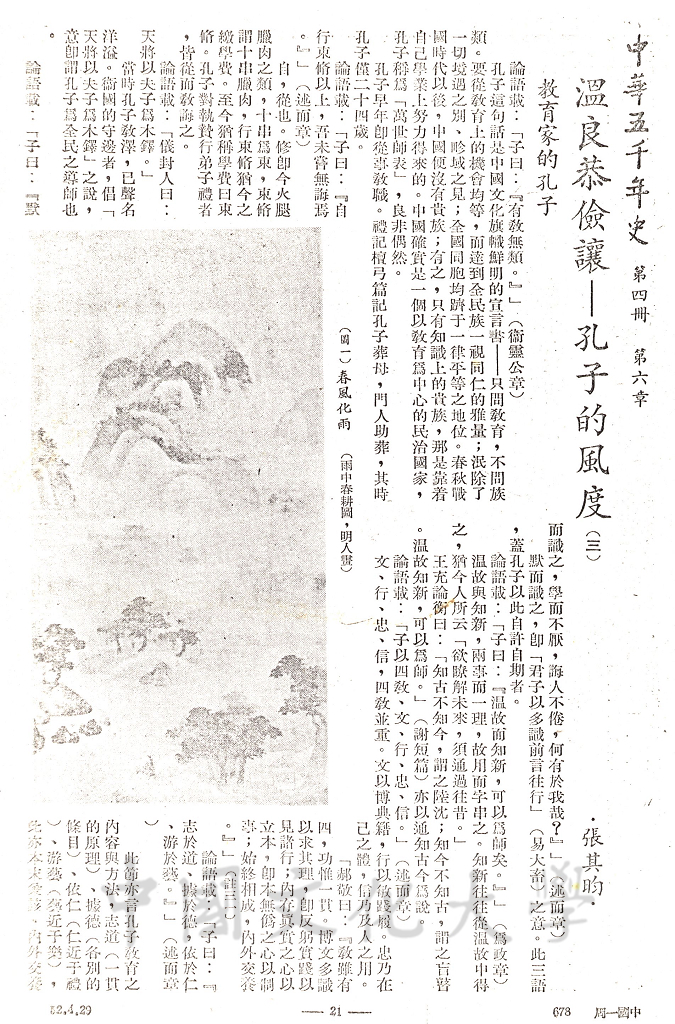 中華五千年史 第四冊 第六章
溫良恭儉讓—孔子的風度(三)
·張其昀·
教育家的孔子
論語載:「子曰:『有教無類。』」(衞靈公章)
孔子這句話是中國文化旗幟鮮明的宣言書——只問教育,不問族
類。要從教育上的機會均等,而達到全民族一視同仁的雅量;泯除了
一切境遇之別、畛域之見;全國同胞均躋于一律平等之地位。春秋戰
國時代以後,中國便沒有貴族;有之,只有知識上的貴族,那是靠着
自己學業上努力得來的。中國確實是一個以教育爲中心的民治國家,
孔子稱爲「萬世師表」,良非偶然。
孔子早年卽從事教職。禮記檀弓篇記孔子葬母,門人助葬,其時
孔子僅二十四歲。
論語載:「子曰:『自
行束脩以上,吾未嘗無誨焉
。』」(述而章)
自,從也。脩卽今火腿
臘肉之類,十串爲束,束脩
謂十串臘肉,行束脩猶今之
繳學費。至今猶稱學費曰束
脩。孔子對執贄行弟子禮者
,皆從而教誨之。
論語載:「儀封人曰:
天將以夫子爲木鐸。」
當時孔子教澤,已聲名
洋溢。衞國的守邊者,倡「
天將以夫子爲木鐸」之說,
意卽謂孔子爲全民之導師也
。
論語載:「子曰:『默
(圖一)春風化雨 (雨中春耕圖,明人畫)
而識之,學而不厭,誨人不倦,何有於我哉?』」(述而章)
默而識之,卽「君子以多識前言往行」(易大畜)之意。此三語
,蓋孔子以此自許自期者。
論語載:「子曰:『溫故而知新,可以爲師矣。』」(爲政章)
溫故與知新,兩事而一理,故用而字串之。知新往往從溫故中得
之,猶今人所云「欲瞭解未來,須通過往昔。」
王充論衡曰:「知古不知今,謂之陸沈;知今不知古,謂之盲瞽
。溫故知新,可以爲師。」(謝短篇)亦以通知古今爲說。
論語載:「子以四教、文、行、忠、信。」(述而章)
文、行、忠、信,四教並重。文以博典籍,行以敏踐履。忠乃在
己之體,信乃及人之用。
「郝敬曰:『教雖有
四,功惟一貫。博文多識
以求其理,卽反躬實踐以
見諸行;內存眞實之心以
立本,卽本無僞之心以制
事;始終相成,內外交養
。』」(註三一)
論語載:「子曰:『
志於道、據於德、依於仁
、游於藝。』」(述而章
)
此節亦言孔子教育之
內容與方法,志道(一貫
的原理)、據德(各別的
條目)、依仁(仁近于禮
)、游藝(藝近于樂),
中國文化大學
52.4.29
— 21 —
678
中國一周